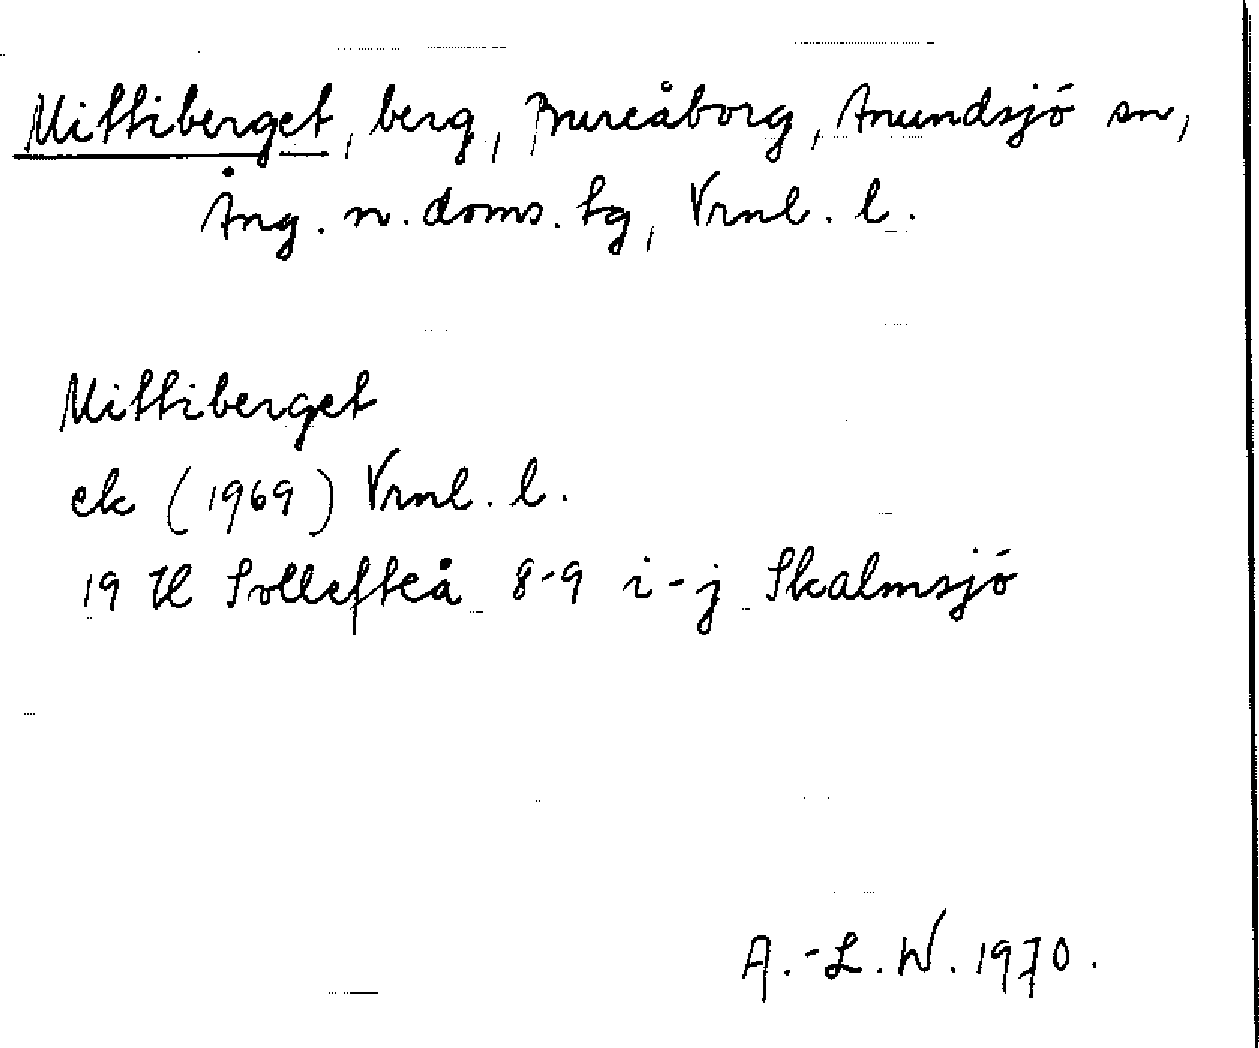 Mittiberget, berg, Bureåborg, Anundsjö sn,
Ång. n. doms. tg, Vrnl. l.
Mittiberget
ek (1969) Vrnl. l.
19 H Sollefteå 8-9 i-j Skalmsjö
A.-L. W. 1970.